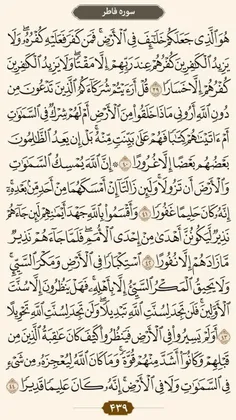 سوره فاطر
هُوَ الَّذِی جَعَلَکُمْ خَلَائِفَ فِی الْأَرْضِ فَمَنْ کَفَرَ فَعَلَیْهِ کُفْرُهُ وَلَا
یَزِیدُ الْکَافِرِینَ کُفْرُهُمْ عِنْدَ رَبِّهِمْ إِلَّا مَقْتًا وَلَا یَزِیدُ الْکَافِرِینَ
کُفْرُهُمْ إِلَّا خَسَارًا ۳۹ قُلْ أَرَأَیْتُمْ شُرَکَاءَکُمُ الَّذِینَ تَدْعُونَ مِنْ
دُونِ اللَّهِ أَرُونِی مَاذَا خَلَقُوا مِنَ الْأَرْضِ أَمْ لَهُمْ شِرْکٌ فِی السَّمَاوَاتِ
أَمْ آتَیْنَاهُمْ کِتَابًا فَهُمْ عَلَی بَیِّنَتٍ مِنْهُ بَلْ إِنْ یَعِدُ الظَّالِمُونَ
بَعْضُهُمْ بَعْضًا إِلَّا غُرُورًا ۴۰ إِنَّ اللَّهَ یُمْسِکُ السَّمَاوَاتِ
وَالْأَرْضَ أَنْ تَزُولَا وَلَئِنْ زَالَتَا إِنْ أَمْسَکَهُمَا مِنْ أَحَدٍ مِنْ بَعْدِهِ
إِنَّهُ کَانَ حَلِیمًا غَفُورًا ۴۱ وَأَقْسَمُوا بِاللَّهِ جَهْدَ أَیْمَانِهِمْ لَئِنْ جَاءَهُمْ
نَذِیرٌ لَیَکُونُنَّ أَهْدَی مِنْ إِحْدَی الْأُمَمِ فَلَمَّا جَاءَهُمْ نَذِیرٌ
مَا زَادَهُمْ إِلَّا نُفُورًا ۴۲ اسْتِکْبَارًا فِی الْأَرْضِ وَمَکْرَ السَّیِّئِ
وَلَا یَحِیقُ الْمَکْرُ السَّیِّئُ إِلَّا بِأَهْلِهِ فَهَلْ یَنْظُرُونَ إِلَّا سُنَّتَ
الْأَوَّلِینَ فَلَنْ تَجِدَ لِسُنَّتِ اللَّهِ تَبْدِیلًا وَلَنْ تَجِدَ لِسُنَّتِ اللَّهِ تَحْوِیلًا
۴۳ أَوَلَمْ یَسِیرُوا فِی الْأَرْضِ فَیَنْظُرُوا کَیْفَ کَانَ عَاقِبَةُ الَّذِینَ مِنْ
قَبْلِهِمْ وَکَانُوا أَشَدَّ مِنْهُمْ قُوَّةً وَمَا کَانَ اللَّهُ لِیُعْجِزَهُ مِنْ شَیْءٍ
فِی السَّمَاوَاتِ وَلَا فِی الْأَرْضِ إِنَّهُ کَانَ عَلِیمًا قَدِیرًا ۴۴
۴۳۹